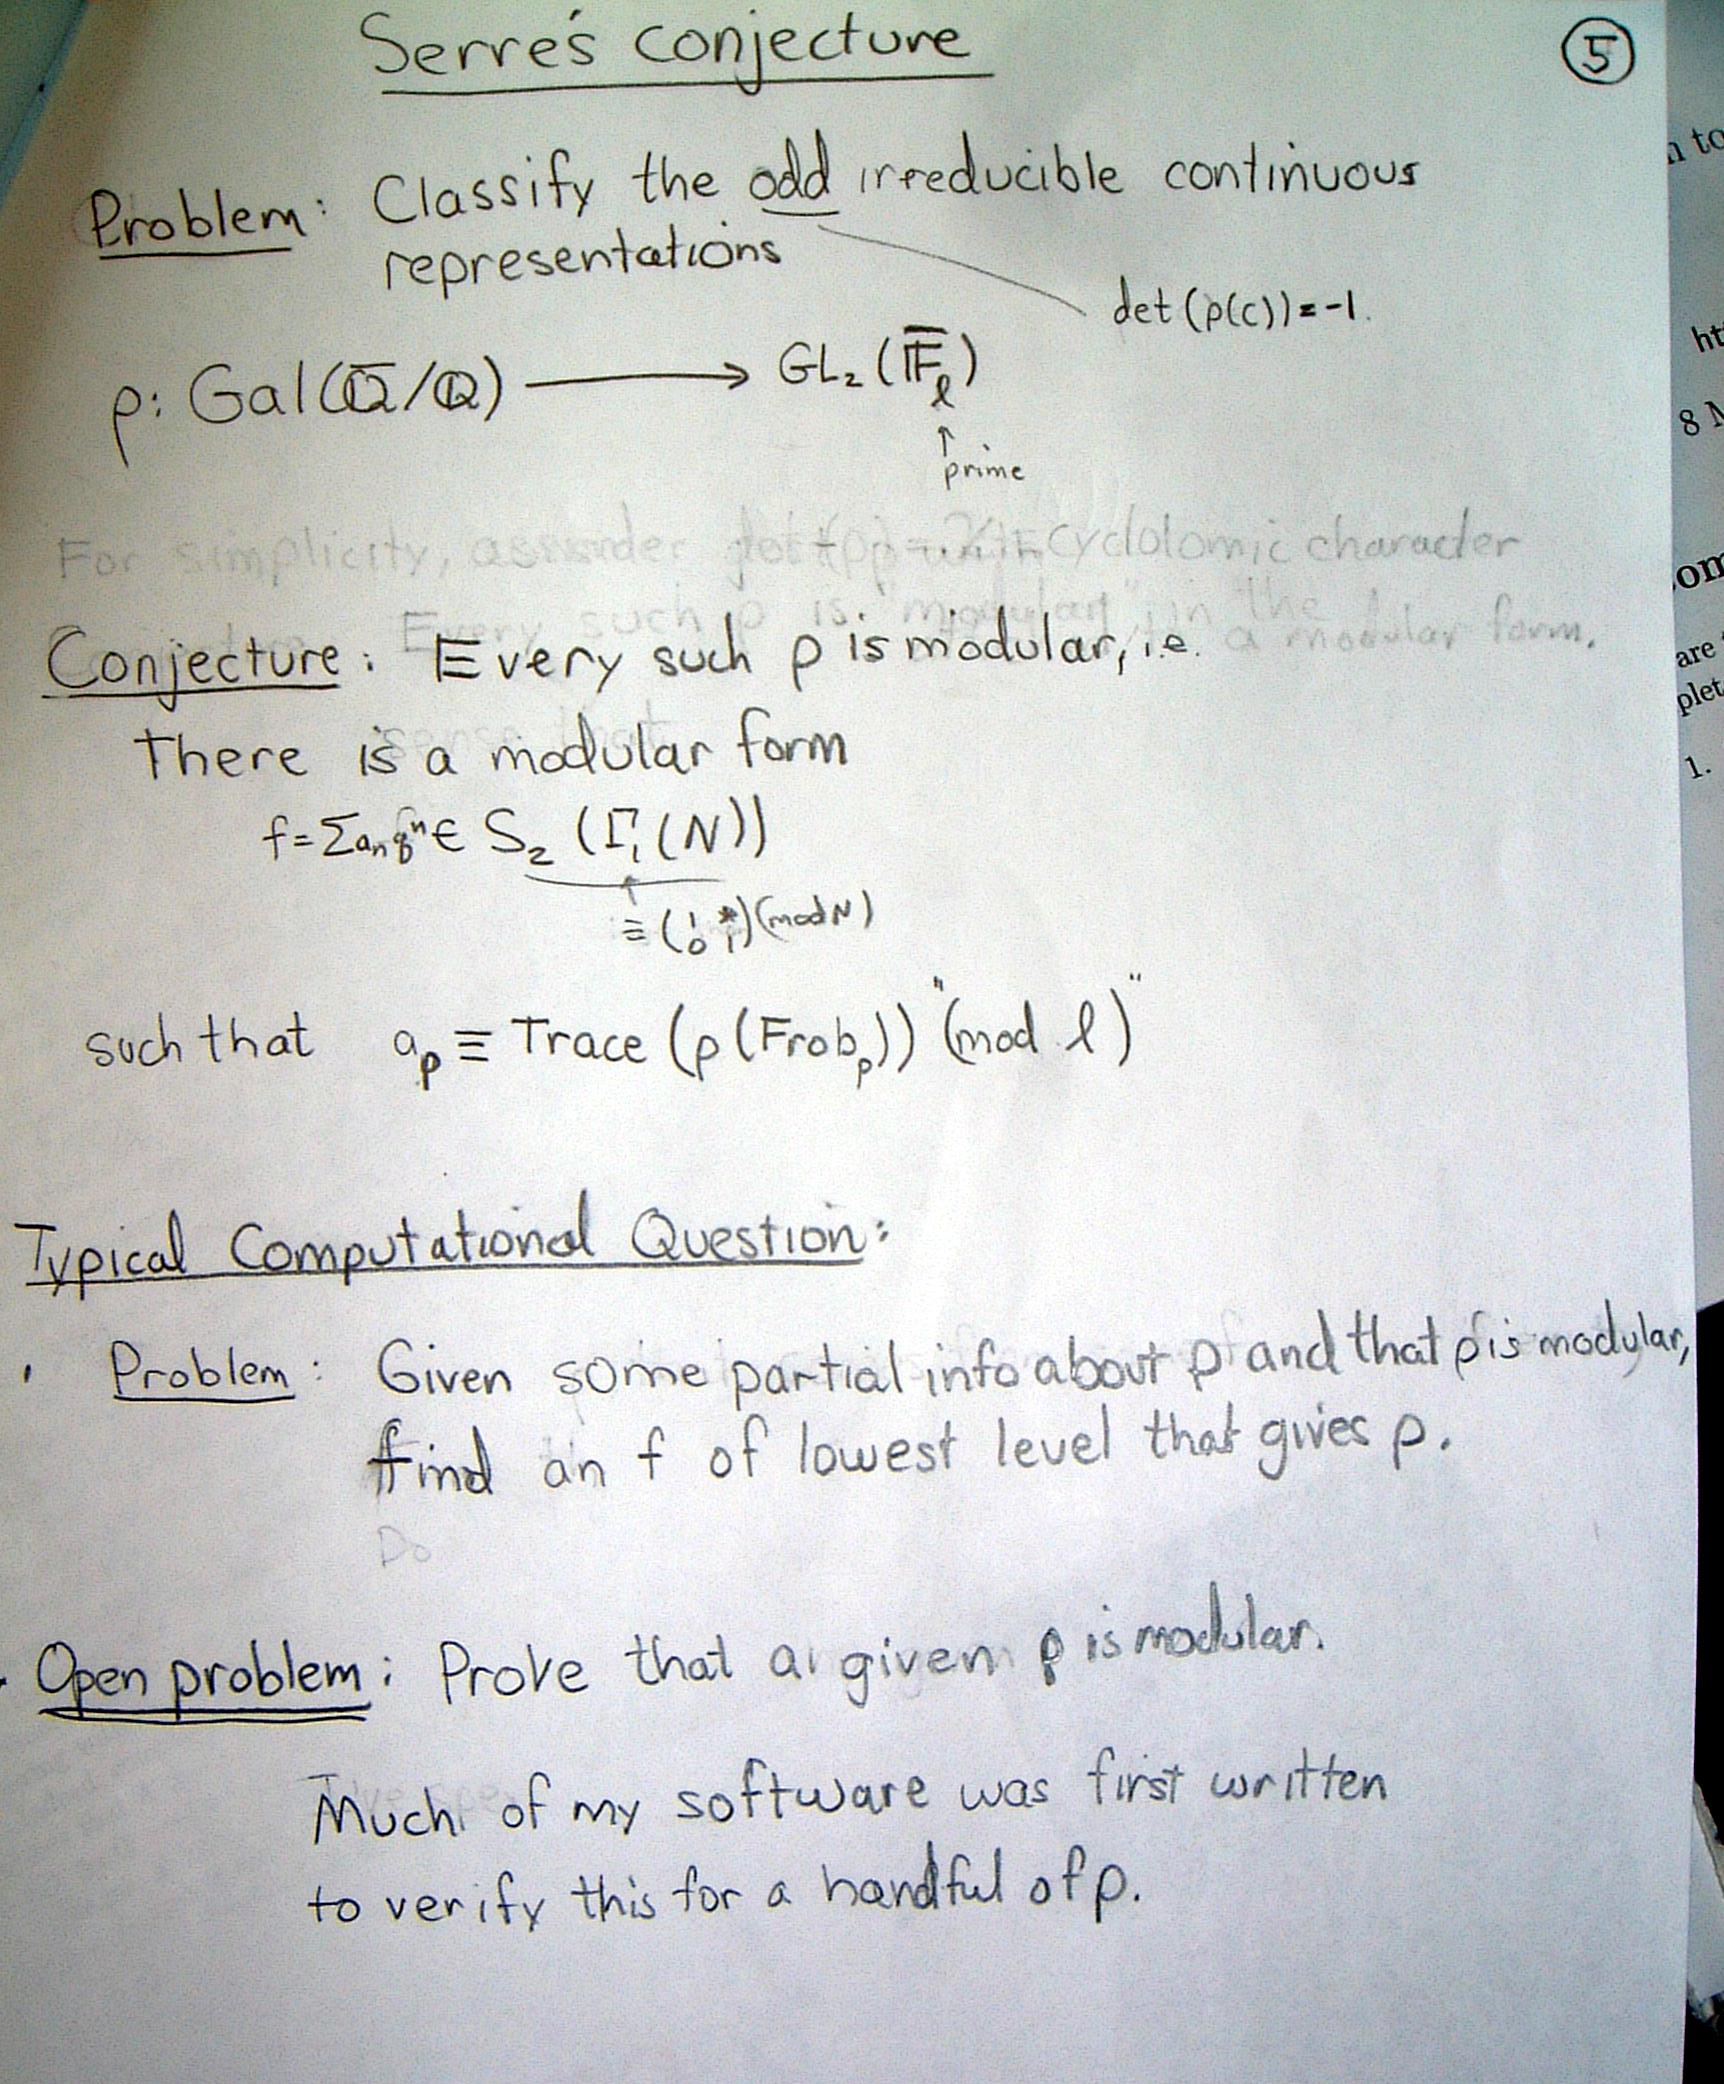 Serre's conjecture
⑤
Problem: Classify the odd irreducible continuous
representations
det(ρ(c)) = -1.
ρ: Gal(Q̅/Q) ⟶ GL₂(F̅_ℓ)
↑
prime
For simplicity, cyclotomic character
Conjecture: Every such ρ is modular, i.e.
a modular form.
There is a modular form
f = Σaₙqⁿ ∈ S₂(Γ₁(N))
≡ (1 * 0 1) (mod N)
such that a_p ≡ Trace(ρ(Frob_p)) "(mod ℓ)"
Typical Computational Question:
Problem: Given some partial info about ρ and that ρ is modular,
find an f of lowest level that gives ρ.
Do
Open problem: Prove that a given ρ is modular.
Much of my software was first written
to verify this for a handful of ρ.
1.